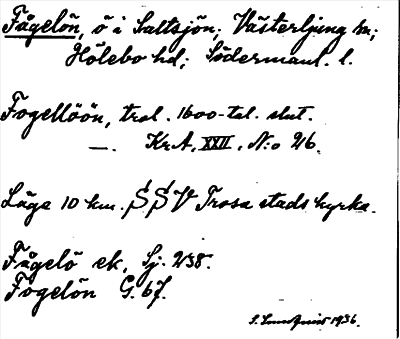 Fågelön, ö i Saltsjön; Västerljung sn;
Hölebo hd; Södermanl. l.
Fogellöön, trol. 1600-tal. slut.
—. Kr.A, XXII, N:o 26.
Läge 10 km. SSV Trosa stads kyrka.
Fågelö ek, Sj. 238.
Fogelön G. 67.
S. Lundqvist 1936.